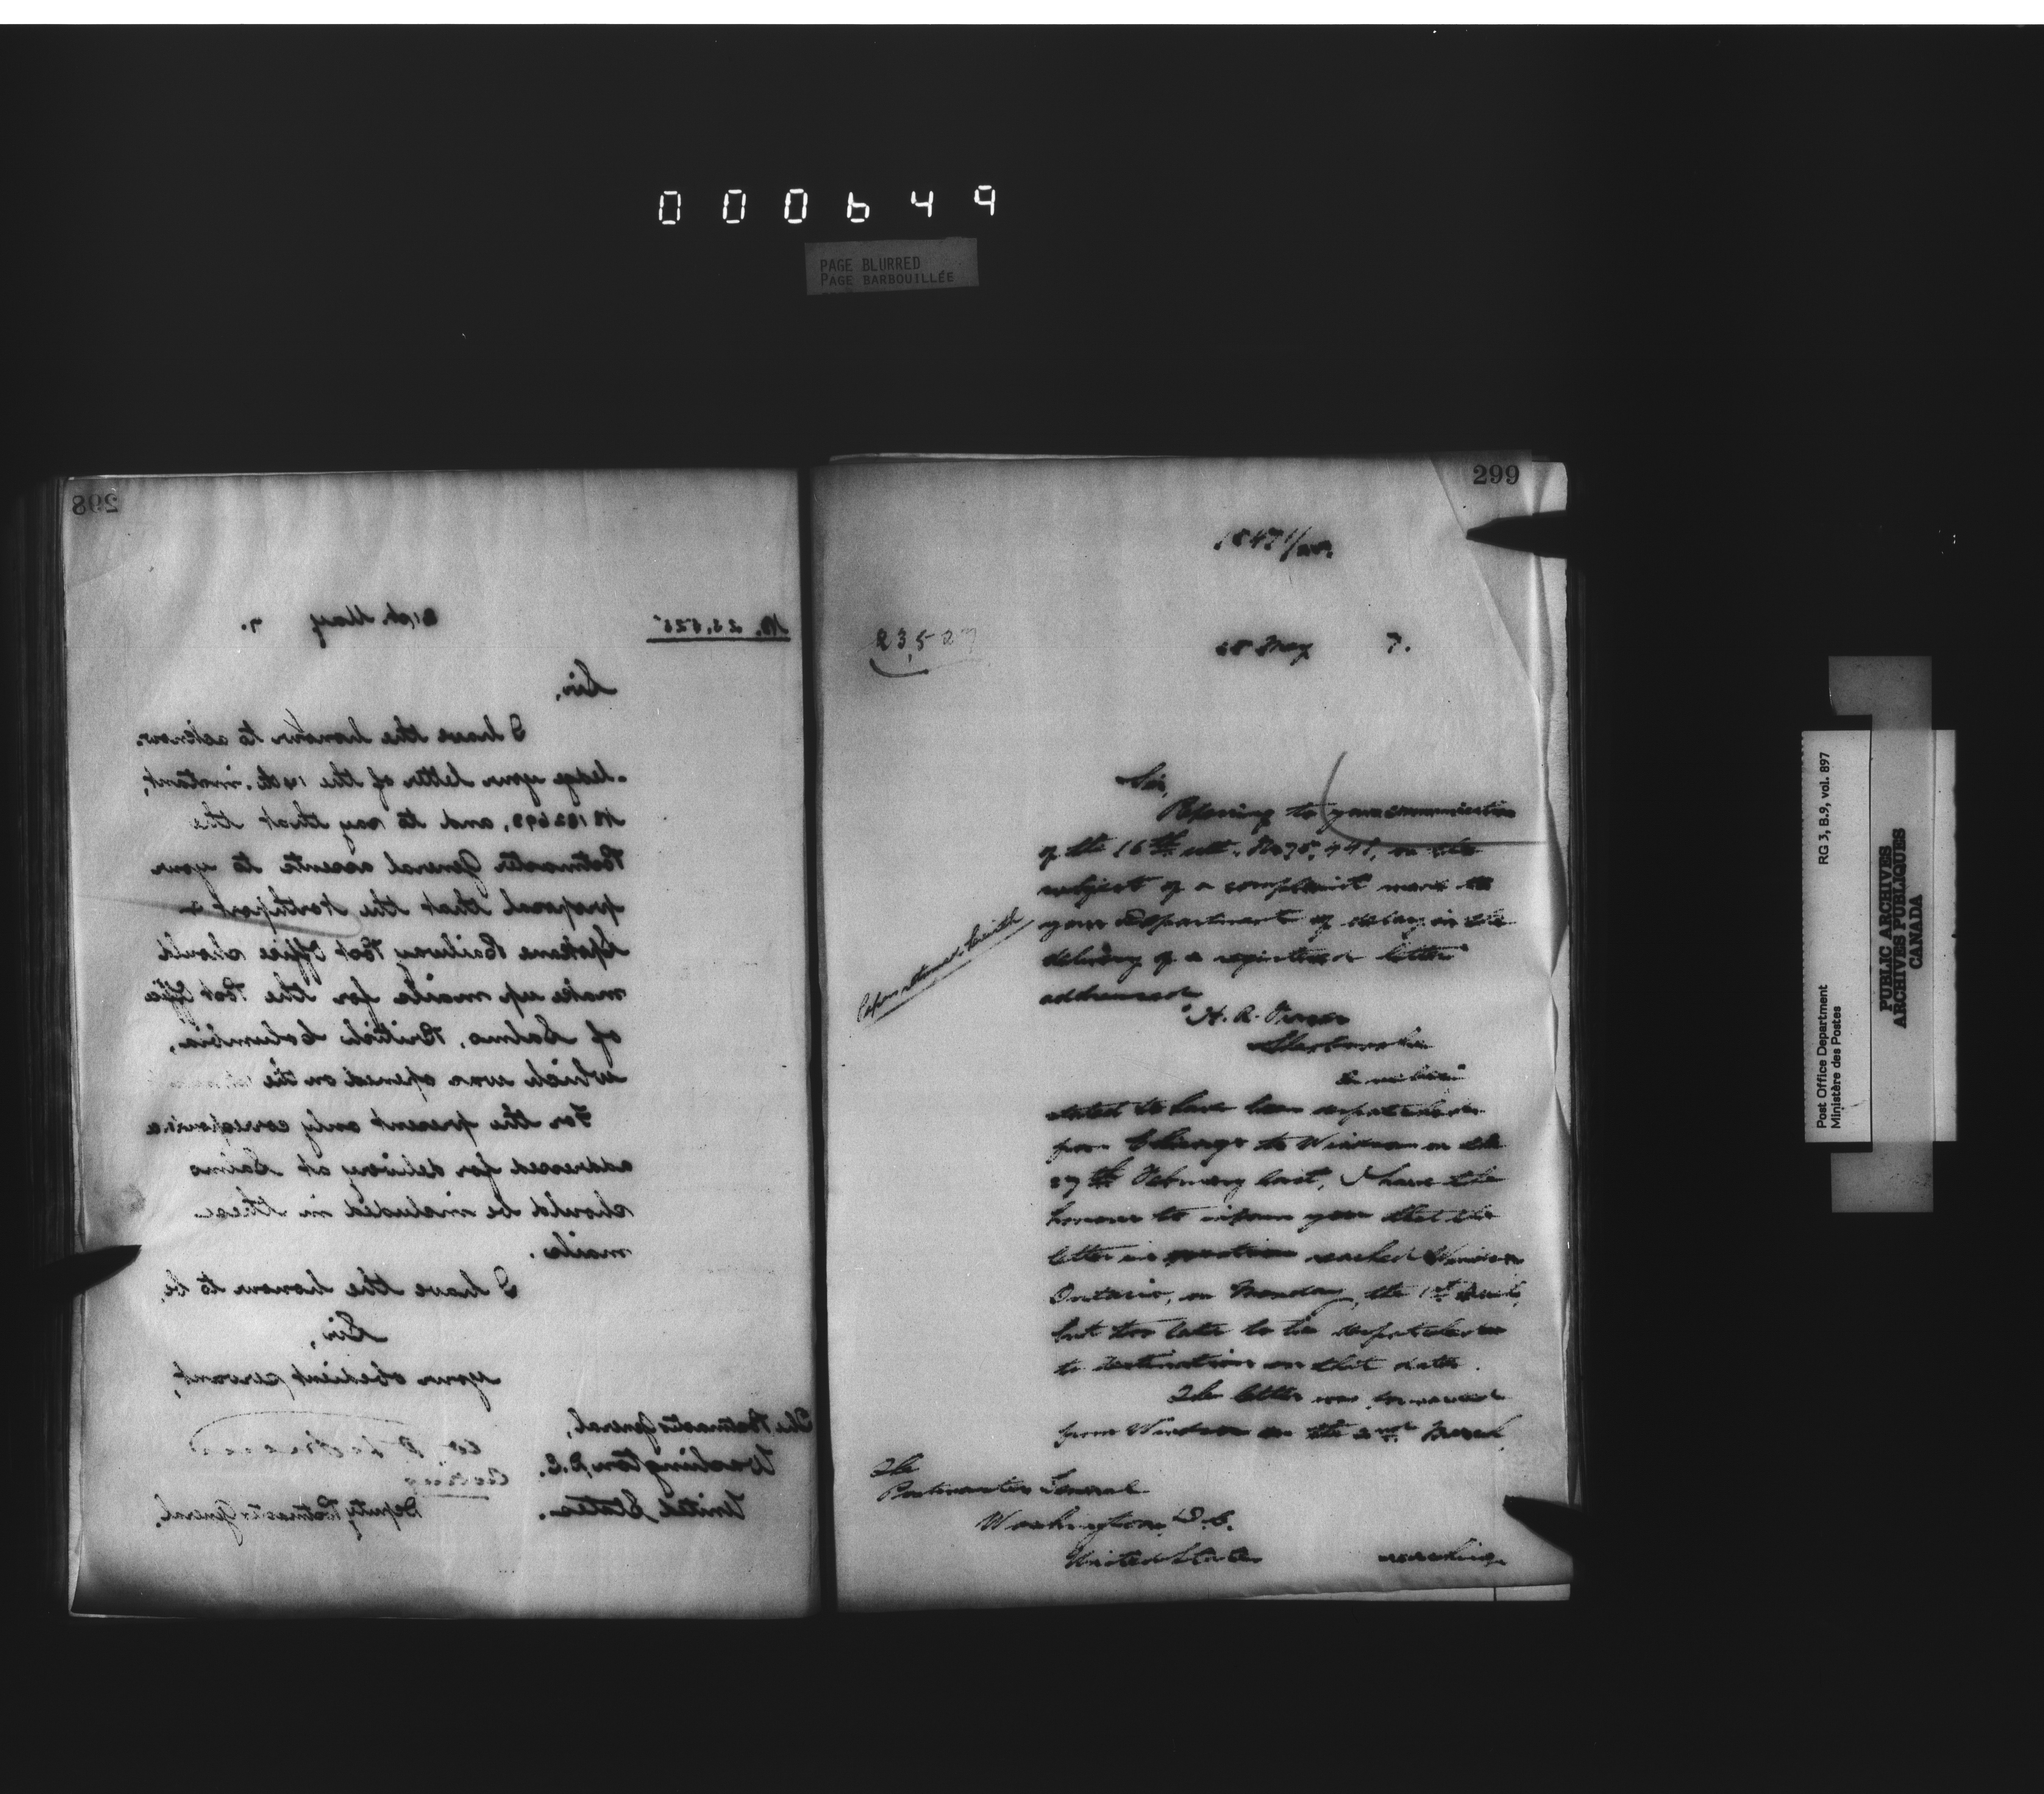 000649
PAGE BLURRED
PAGE BARBOUILLÉE
298
No. 23,525
21st. May 7.
Sir,
I have the honour to acknow-
-ledge your letter of the 14th. instant,
and to say that the
Postmaster General assents to your
proposal that the Northport &
Spokane Railway Post Office should
make up mails for the Post Office
of Salmo, British Columbia,
which was opened on the
For the present only correspondence
addressed for delivery at Salmo
should be included in these
mails.
I have the honour to be,
Sir,
your obedient servant,
Acting
Deputy Postmaster General.
The Postmaster General,
Washington, D.C.
United States.
299
23,527
28 May 7.
Sir,
Referring to your communication
of the 16th ult. on the
subject of a complaint made to
your Department of delay in the
delivery of a registered letter
addressed
H. R. Fraser
Sherbrooke
Quebec
stated to have been despatched
from Chicago to Windsor on the
27th February last, I have the
honour to inform you that the
letter in question reached Windsor
Ontario, on Monday, the 1st
but too late to be despatched
to destination on that date.
The letter was forwarded
from Windsor on the 2nd March,
The
Postmaster General
Washington, D.C.
United States
reaching
Post Office Department
Ministère des Postes
RG 3, B.9, vol. 897
PUBLIC ARCHIVES
ARCHIVES PUBLIQUES
CANADA